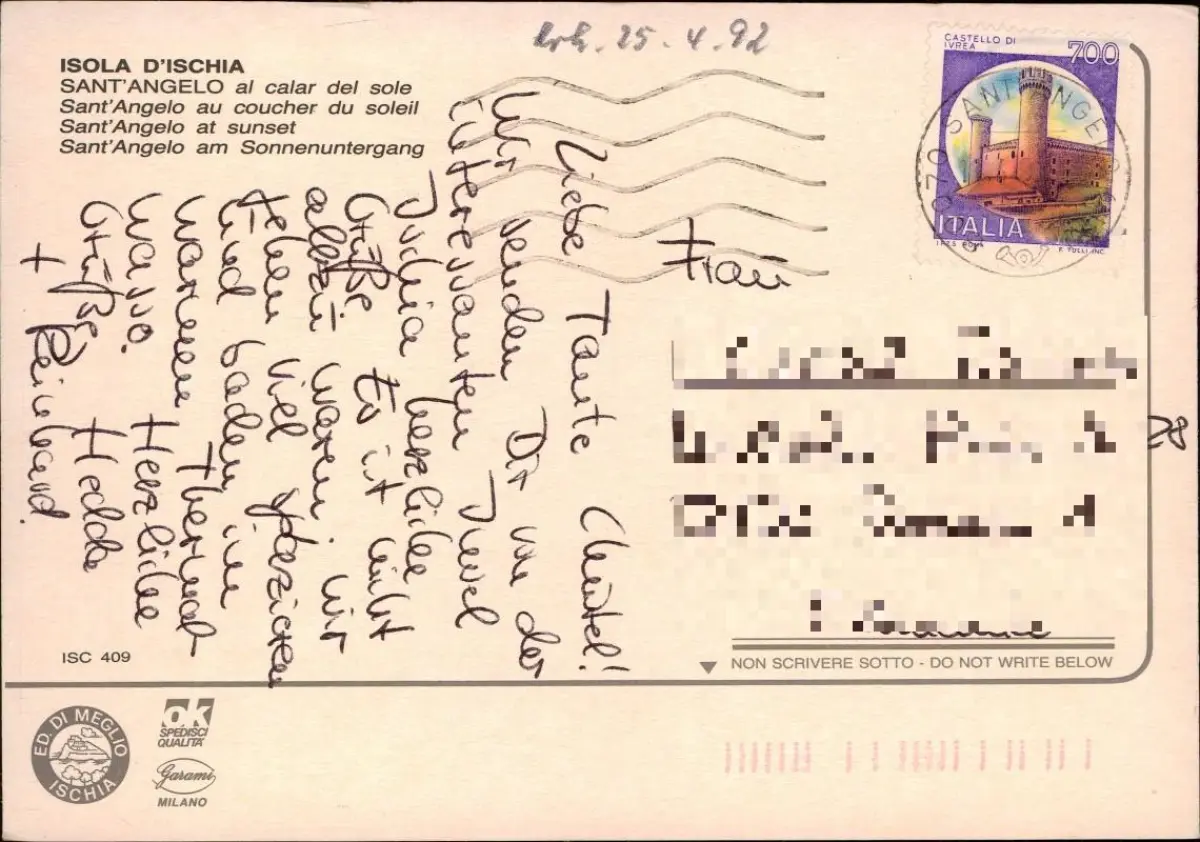 erh. 25.4.92
ISOLA D'ISCHIA
SANT'ANGELO al calar del sole
Sant'Angelo au coucher du soleil
Sant'Angelo at sunset
Sant'Angelo am Sonnenuntergang
CASTELLO DI IVREA
700
ITALIA
I.P.S. ROMA
SANT'ANGELO
Liebe Tante Christel!
Wir senden Dir von der
interessanten Insel
Ischia herzliche
Grüße. Es ist nicht
allzu warm. Wir
gehen viel spazieren
und baden im
warmen Thermal-
wasser.
Herzliche
Grüße Hedda
+ Reinhard.
Frau
ISC 409
NON SCRIVERE SOTTO - DO NOT WRITE BELOW
ED. DI MEGLIO
ISCHIA
ok
SPEDISCI
QUALITÀ
Garami
MILANO